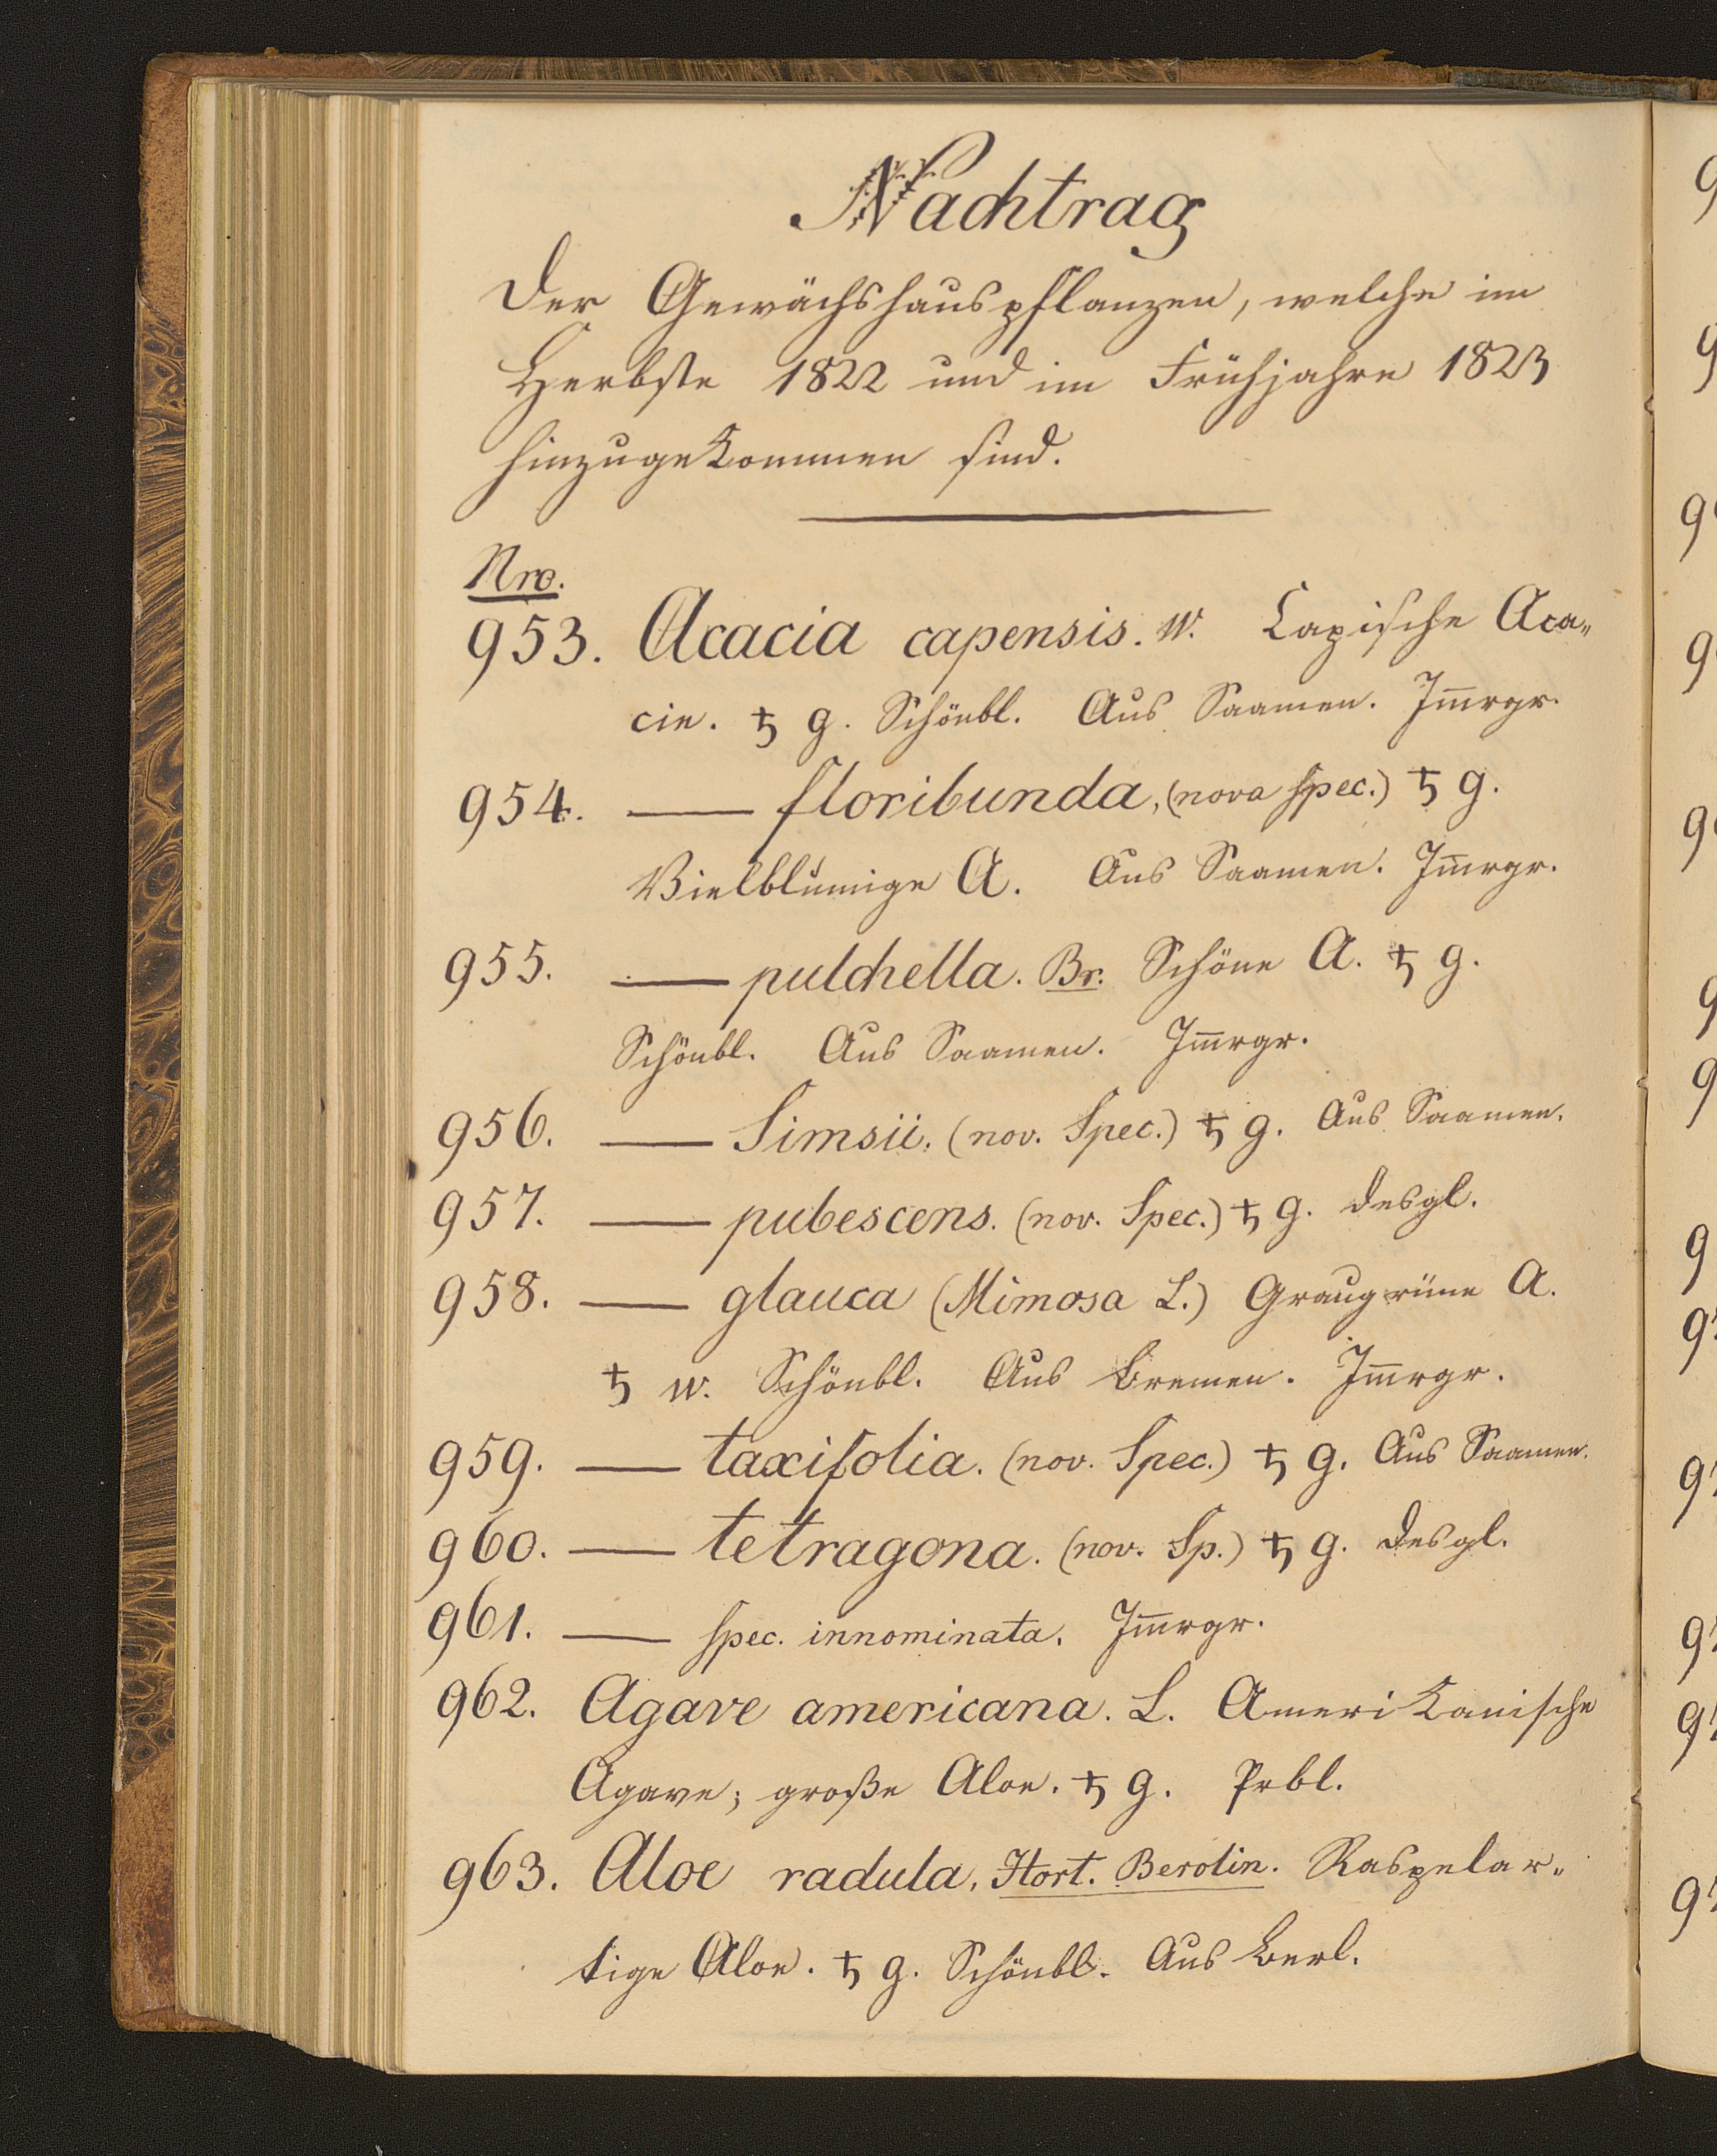 Nachtrag
der Gewächshauspflanzen, welche im
Herbste 1822 und im Frühjahre 1823
hinzugekommen sind.
Nro.
953. Acacia capensis. W. Capische Aca„
cie. ♄ g. Schönbl. Aus Saamen. Im̅rgr.
954. — floribunda, (nova spec.) ♄ g.
Vielblumige A. Aus Saamen. Im̅rgr.
955. — pulchella. Br. Schöne A. ♄ g.
Schönbl. Aus Saamen. Im̅rgr.
956. — Simsii. (nov. Spec.) ♄ g. Aus Saamen.
957. — pubescens. (nov. Spec.) ♄ g. desgl.
958. — glauca (Mimosa L.) Graugrüne A.
♄ w. Schönbl. Aus Bremen. Im̅rgr.
959. — taxifolia. (nov. Spec.) ♄ g. Aus Saamen.
960. — tetragona. (nov. Sp.) ♄ g. desgl.
961. — spec. innominata. Im̅rgr.
962. Agave americana. L. Amerikanische
Agave; große Aloe. ♄ g. Prbl.
963. Aloe radula, Hort. Berolin. Raspelar„
tige Aloe. ♄ g. Schönbl. Aus Berl.